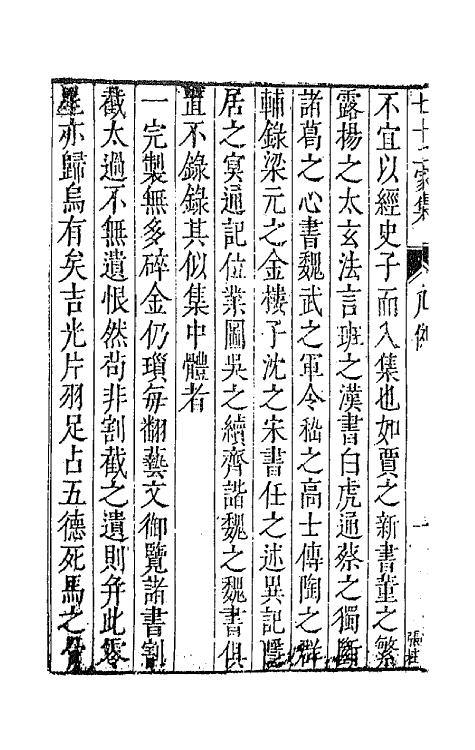 七十二家集 凡例 一 張
不宜以經史子而入集也如賈之新書董之繁
露揚之太玄法言班之漢書白虎通蔡之獨斷
諸葛之心書魏武之軍令嵇之高士傳陶之群
輔錄梁元之金樓子沈之宋書任之述異記隱
居之冥通記位業圖吳之續齊諧魏之魏書俱
置不錄錄其似集中體者
一完製無多碎金仍瑣每翻藝文御覽諸書割
截太過不無遺恨然苟非割截之遺則并此零
星亦歸烏有矣吉光片羽足占五德死馬之骨